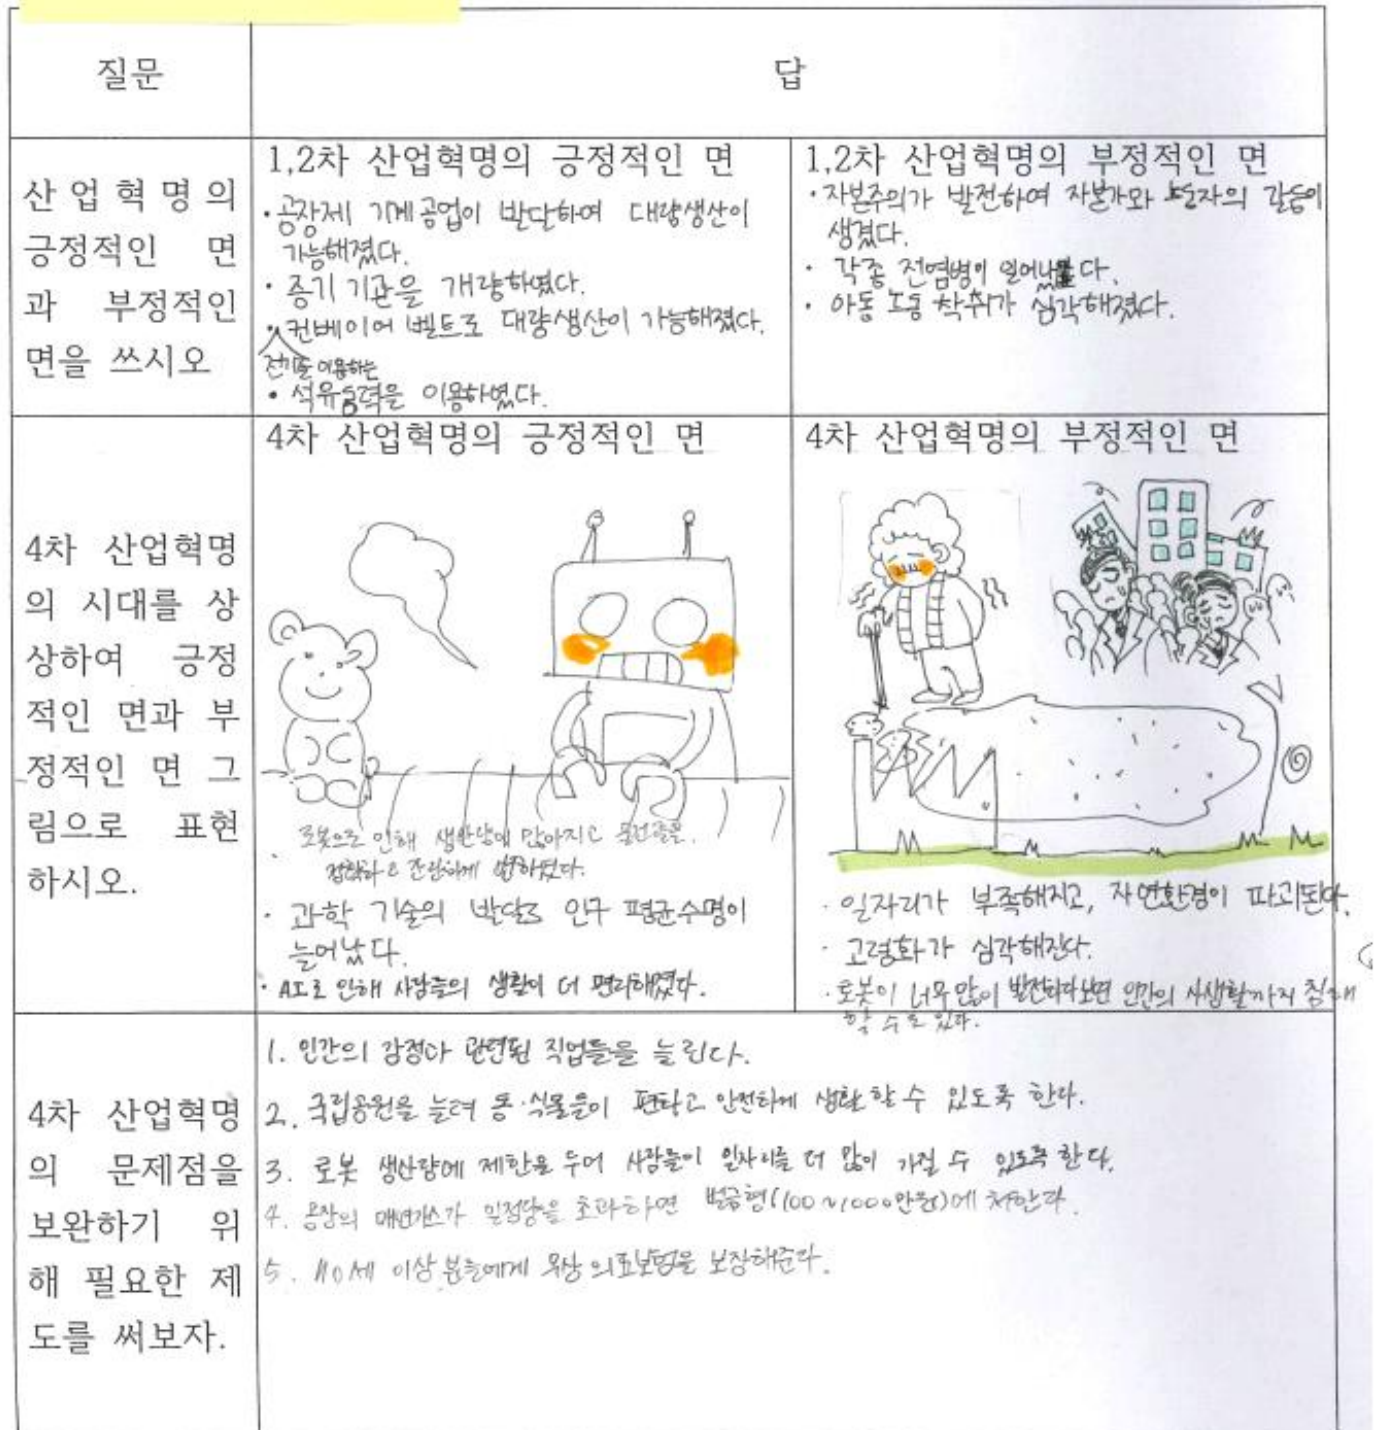 질문
답
산업혁명의
긍정적인 면
과 부정적인
면을 쓰시오
1,2차 산업혁명의 긍정적인 면
· 공장제 기계공업이 발달하여 대량생산이
가능해졌다.
· 증기 기관을 개량하였다.
· 컨베이어 벨트로 대량생산이 가능해졌다.
전기를 이용하는
· 석유동력을 이용하였다.
1,2차 산업혁명의 부정적인 면
· 자본주의가 발전하여 자본가와 노동자의 갈등이
생겼다.
· 각종 전염병이 일어났다.
· 아동 노동 착취가 심각해졌다.
4차 산업혁명
의 시대를 상
상하여 긍정
적인 면과 부
정적인 면 그
림으로 표현
하시오.
4차 산업혁명의 긍정적인 면
· 로봇으로 인해 생산량이 많아지고 물건들을
정확하고 간편하게
· 과학 기술의 발달로 인구 평균수명이
늘어났다.
· AI로 인해 사람들의 생활이 더 편리해졌다.
4차 산업혁명의 부정적인 면
· 일자리가 부족해지고, 자연환경이 파괴된다.
· 고령화가 심각해진다.
· 로봇이 너무 많이 발전하다보면 인간의 사생활까지 침해
할 수도 있다.
4차 산업혁명
의 문제점을
보완하기 위
해 필요한 제
도를 써보자.
1. 인간의 감정과 관련된 직업들을 늘린다.
2. 국립공원을 늘려 동·식물들이 편하고 안전하게 생활 할 수 있도록 한다.
3. 로봇 생산량에 제한을 두어 사람들이 일자리를 더 많이 가질 수 있도록 한다.
4. 공장의 매연가스가 일정량을 초과하면 벌금형(100~1000만원)에 처한다.
5. 110세 이상 분들에게 무상 의료보험을 보장해준다.